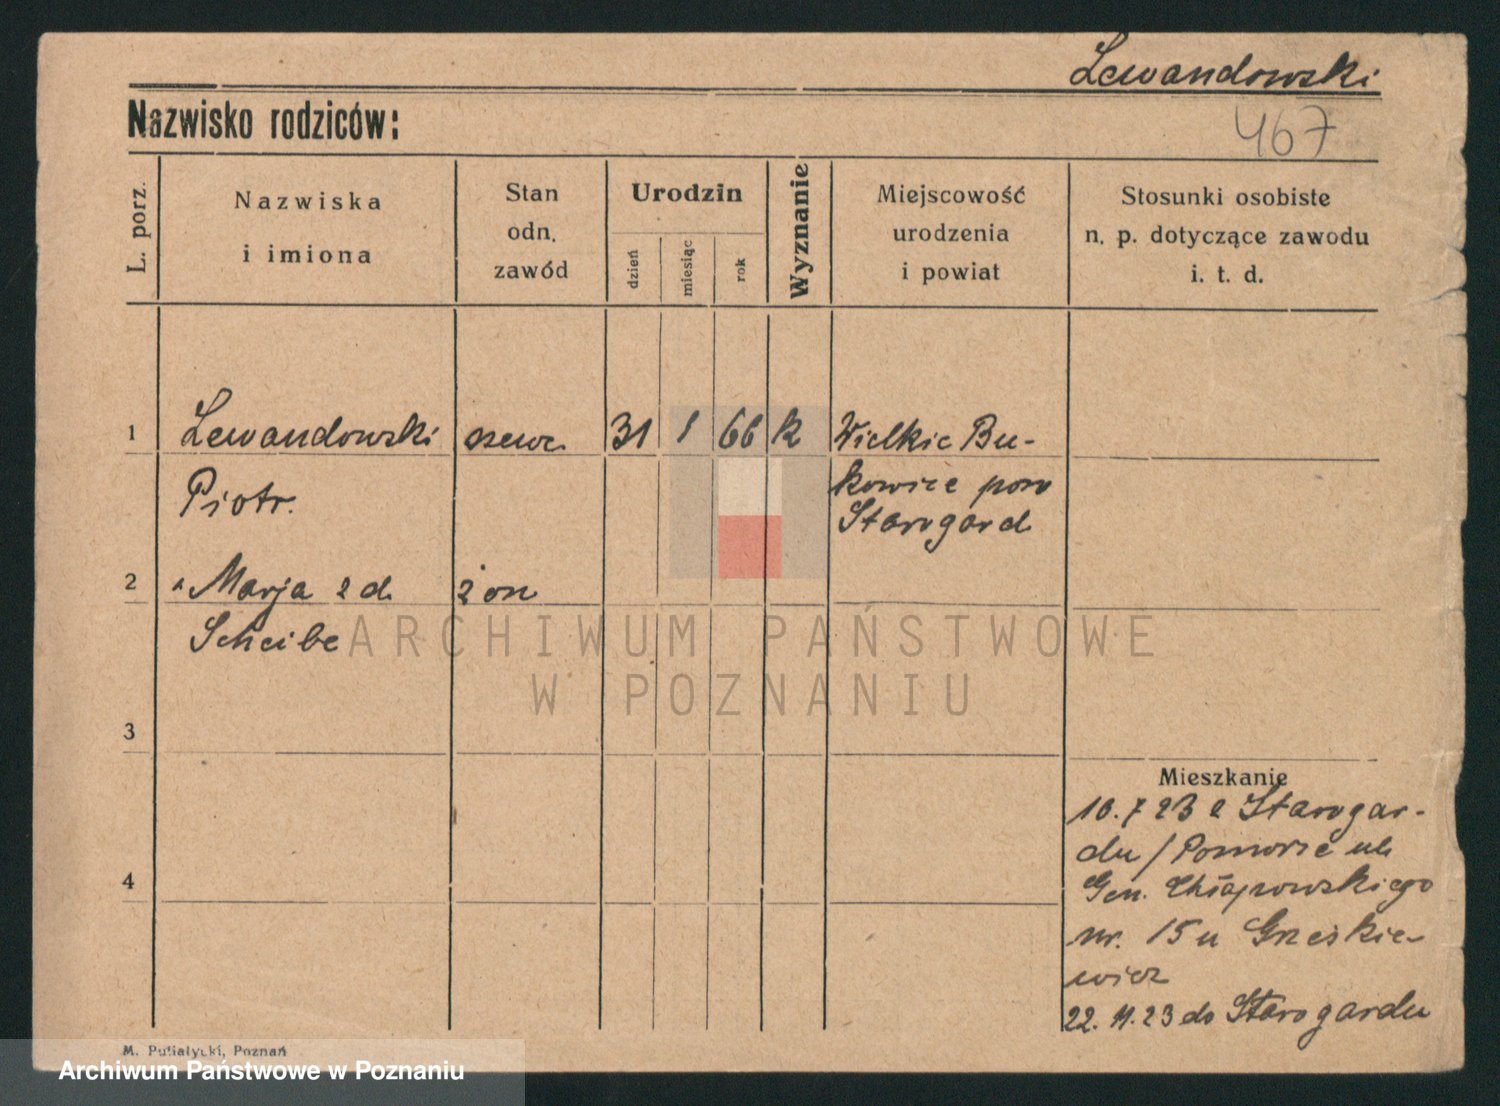 Lewandowski
467
Nazwisko rodziców:
L. porz.
Nazwiska
i imiona
Stan
odn.
zawód
Urodzin
dzień
miesiąc
rok
Wyznanie
Miejscowość
urodzenia
i powiat
Stosunki osobiste
n. p. dotyczące zawodu
i. t. d.
1 Lewandowski szewc 31 1 66 k Wielkie Bu-
Piotr. kowice pow
Starogard
2 Marja z d. żon
Scheibe
ARCHIWUM PAŃSTWOWE
W POZNANIU
3
Mieszkanie
10.7 23 z Starogar-
du / Pomorze ul.
4
Gen. Chłapowskiego
nr. 15 u Grześkie-
wicz
22. 11. 23 do Starogardu
M. Putiatycki, Poznań
Archiwum Państwowe w Poznaniu